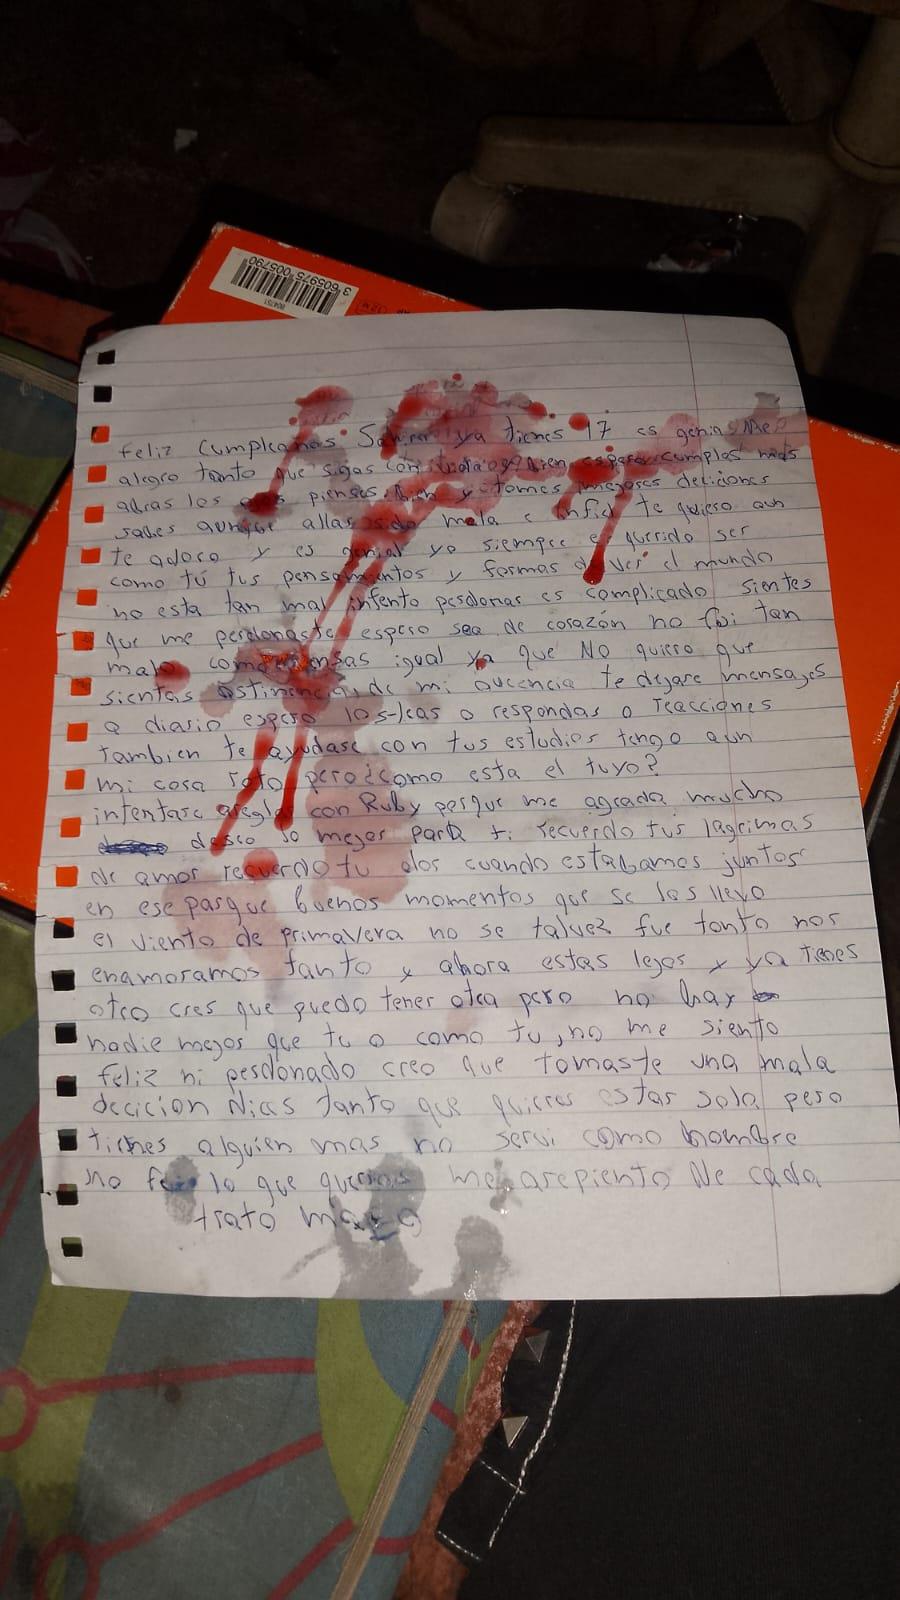 3 605975 005790
feliz cumpleaños ya tienes 17 es genial Me
alegro tanto que sigas con bien espero cumples más
adras los pienses bien y tomes mejores deciciones
sabes aunque allas sido mala e infiel te quiero aun
te adoro y es genial yo siempre e querido ser
como tú tus pensamientos y formas de ver el mundo
no esta tan mal intento perdonar es complicado sientes
que me perdonaste espero sea de corazón no fui tan
malo como piensas igual ya que No quiero que
sientas astinencia de mi aucencia te dejare mensajes
a diario espero los leas o respondas o reacciones
tambien te ayudase con tus estudios tengo aun
mi cora roto pero ¿como esta el tuyo?
intentare areglar con Ruby porque me agrada mucho
deseo lo mejor para ti recuerdo tus lagrimas
de amor recuerdo tu olos cuando estabamos juntos
en ese parque buenos momentos que se los llevo
el viento de primavera no se talvez fue tonto nos
enamoramos tanto y ahora estas lejos y ya tienes
otro cres que puedo tener otra pero no hay
nadie mejor que tu o como tu, no me siento
feliz ni perdonado creo que tomaste una mala
decicion dices tanto que quieres estar sola pero
tienes alguien mas no servi como hombre
no fui lo que querias me arepiento de cada
trato